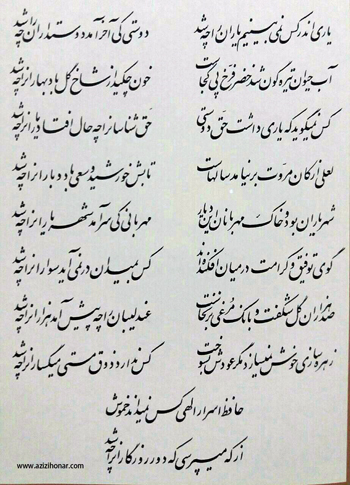 یاری اندر کس نمی بینیم یاران را چه شد دوستی کی آخر آمد دوستداران را چه شد
آب حیوان تیره گون شد خضر فرخ پی کجاست خون چکید از شاخ گل باد بهاران را چه شد
کس نمیگوید که یاری داشت حق دوستی حق شناسان را چه حال افتاد یاران را چه شد
لعلی از کان مروت برنیامد سالهاست تابش خورشید و سعی باد و باران را چه شد
شهر یاران بود و خاک مهربانان این دیار مهربانی کی سر آمد شهریاران را چه شد
گوی توفیق و کرامت در میان افکنده‌اند کس بمیدان در نمی آید سواران را چه شد
صد هزاران گل شکفت و بانگ مرغی برنخاست عندلیبان را چه پیش آمد هزاران را چه شد
زهره سازی خوش نمیسازد مگر عودش بسوخت کس ندارد ذوق مستی میگساران را چه شد
حافظ اسرار الهی کس نمیداند خموش
از که میپرسی که دور روزگاران را چه شد
www.azizihonar.com